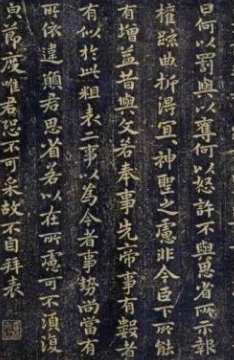 曰何以罰與以奪何以怒許不與思省所示報
權疏曲折得宜〻神聖之慮非今臣下所能
有增益昔與文若奉事先帝事有數者
有似於此粗表二事以為今者事勢尚當有
所依違願君思省若以在所慮可不須復
貌節度唯君恐不可采故不自拜表